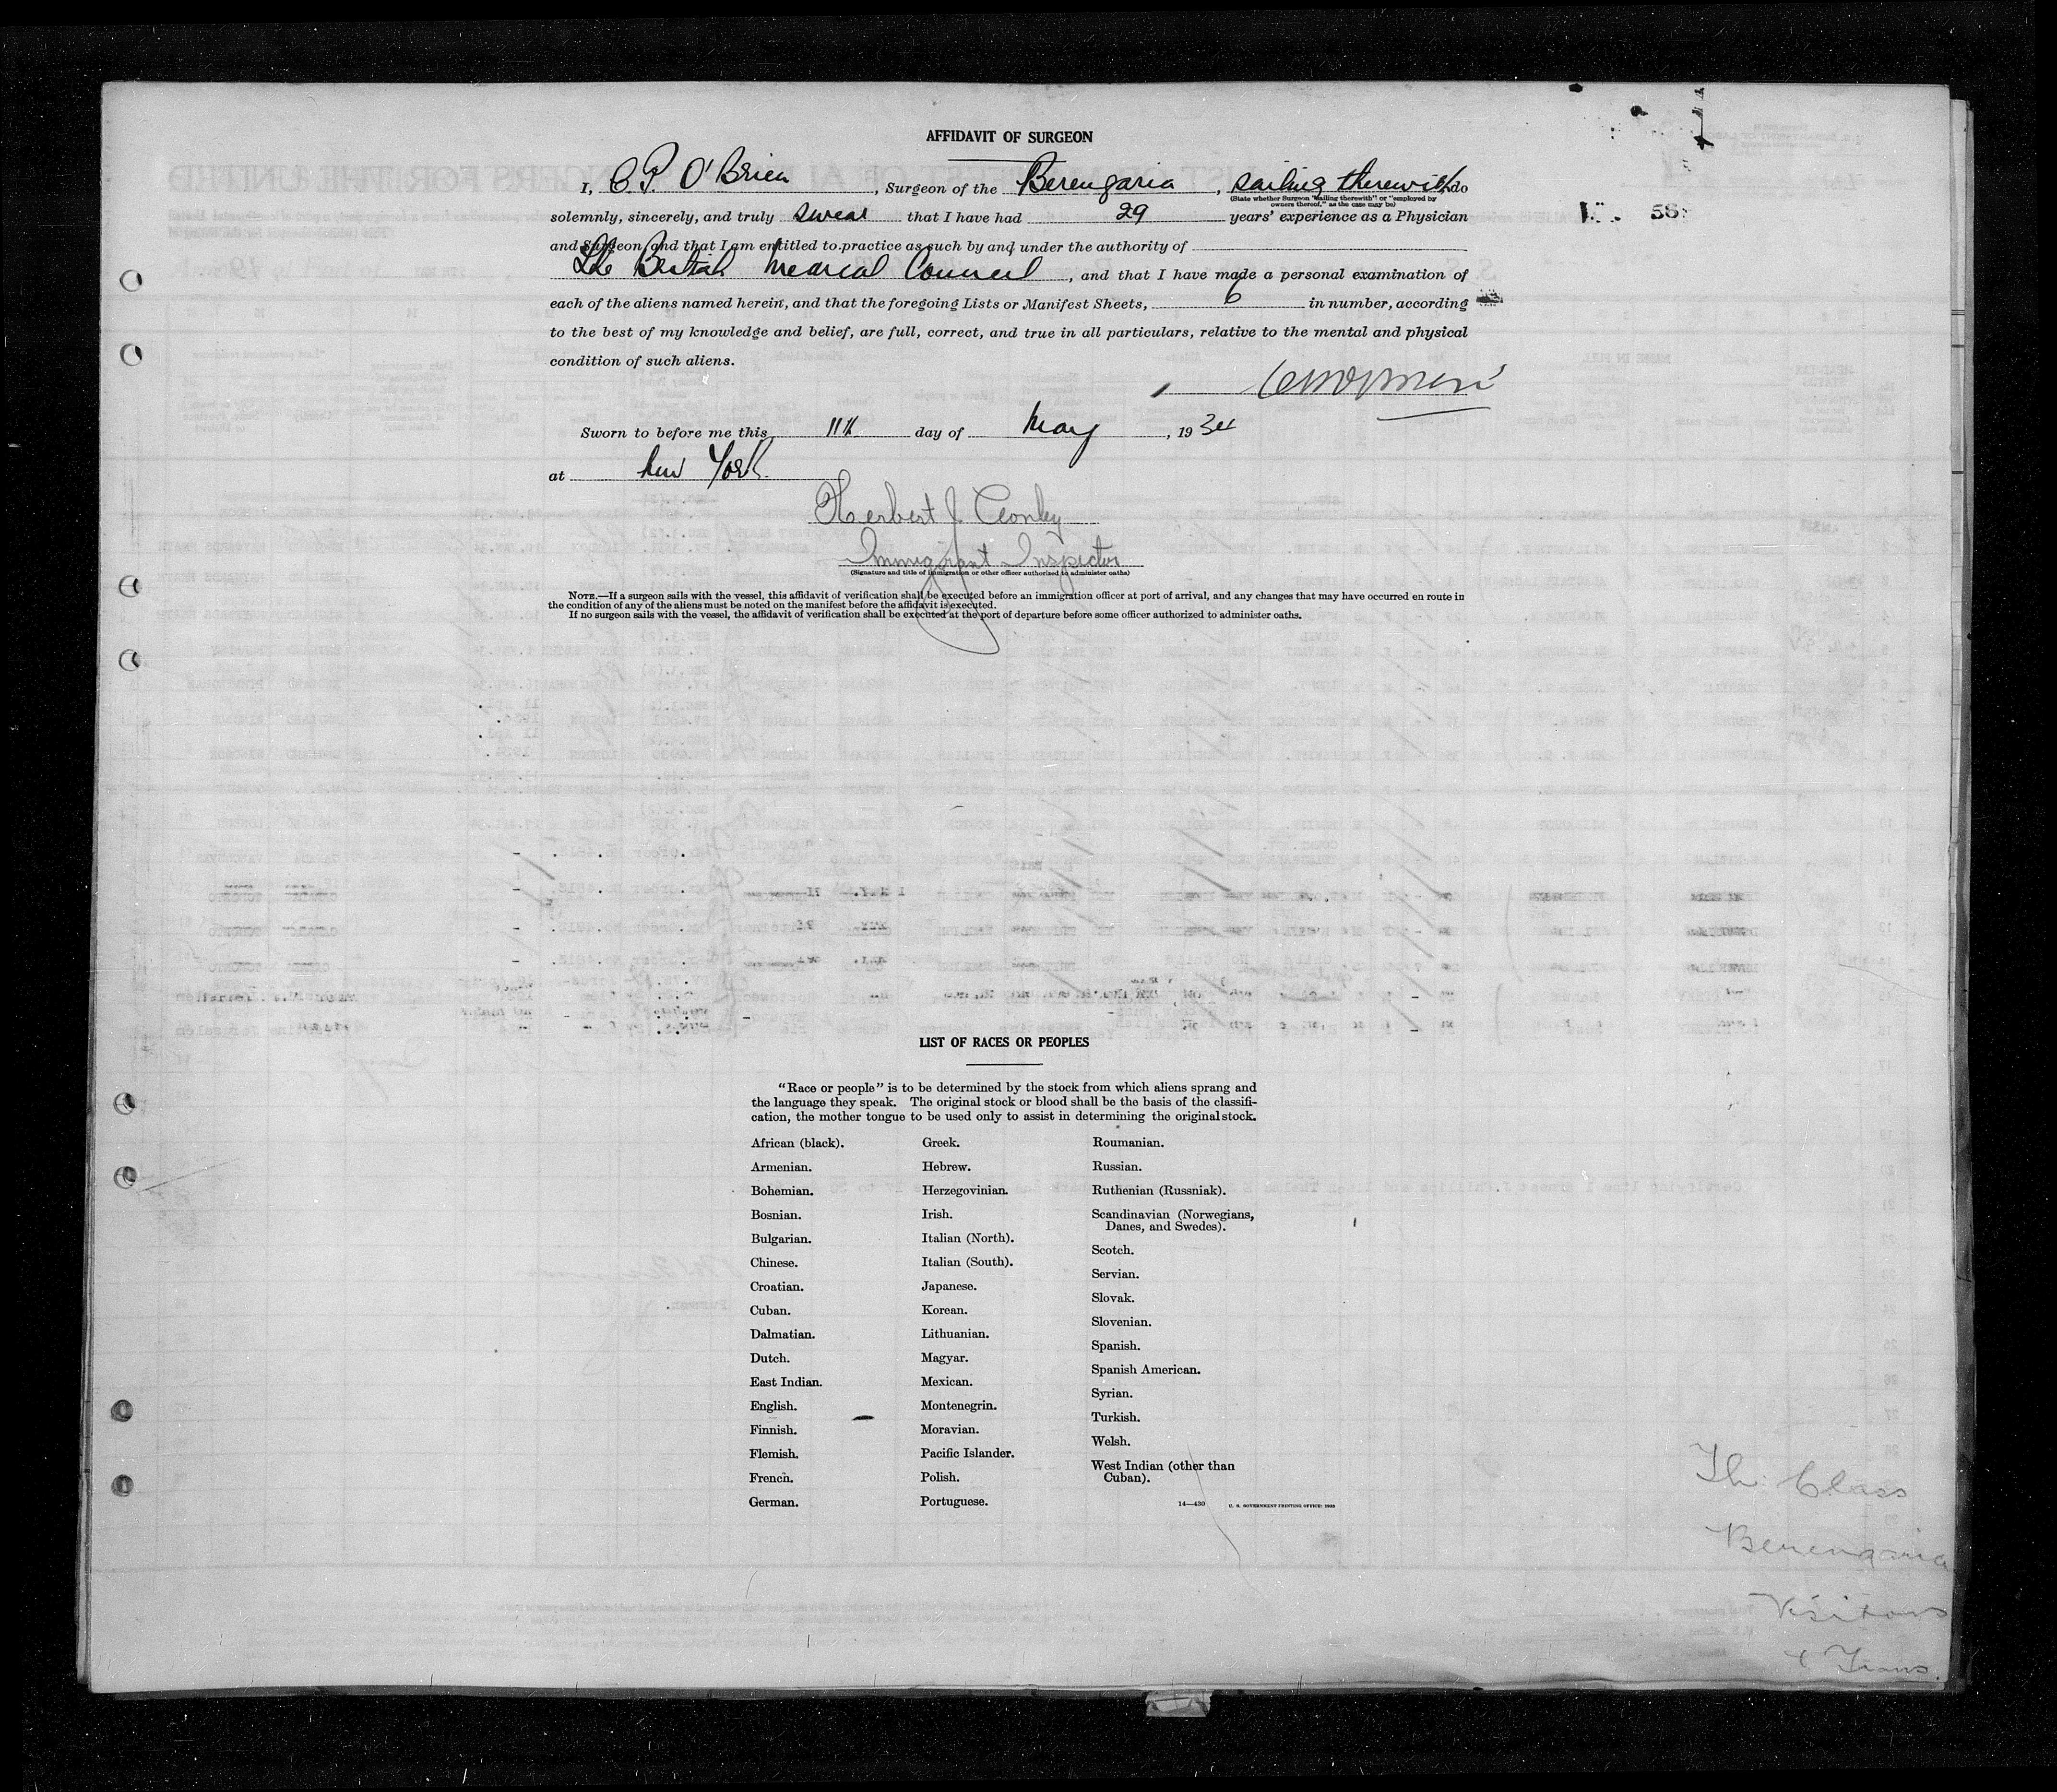 AFFIDAVIT OF SURGEON
I, C.P. O'Brien, Surgeon of the Berengaria, sailing therewith do
(State whether Surgeon "sailing therewith" or "employed by
owners thereof," as the case may be)
solemnly, sincerely, and truly swear that I have had 29 years' experience as a Physician
and Surgeon, and that I am entitled to practice as such by and under the authority of
The British Medical Council, and that I have made a personal examination of
each of the aliens named herein, and that the foregoing Lists or Manifest Sheets, 6 in number, according
to the best of my knowledge and belief, are full, correct, and true in all particulars, relative to the mental and physical
condition of such aliens.
Sworn to before me this 11th day of May, 1934
at New York
Herbert J.
Immigrant Inspector
(Signature and title of immigration or other officer authorized to administer oaths)
NOTE.—If a surgeon sails with the vessel, this affidavit of verification shall be executed before an immigration officer at port of arrival, and any changes that may have occurred en route in
the condition of any of the aliens must be noted on the manifest before the affidavit is executed.
If no surgeon sails with the vessel, the affidavit of verification shall be executed at the port of departure before some officer authorized to administer oaths.
LIST OF RACES OR PEOPLES
"Race or people" is to be determined by the stock from which aliens sprang and
the language they speak. The original stock or blood shall be the basis of the classifi-
cation, the mother tongue to be used only to assist in determining the original stock.
African (black).
Armenian.
Bohemian.
Bosnian.
Bulgarian.
Chinese.
Croatian.
Cuban.
Dalmatian.
Dutch.
East Indian.
English.
Finnish.
Flemish.
French.
German.
Greek.
Hebrew.
Herzegovinian.
Irish.
Italian (North).
Italian (South).
Japanese.
Korean.
Lithuanian.
Magyar.
Mexican.
Montenegrin.
Moravian.
Pacific Islander.
Polish.
Portuguese.
Roumanian.
Russian.
Ruthenian (Russniak).
Scandinavian (Norwegians,
Danes, and Swedes).
Scotch.
Servian.
Slovak.
Slovenian.
Spanish.
Spanish American.
Syrian.
Turkish.
Welsh.
West Indian (other than
Cuban).
14—430 U. S. GOVERNMENT PRINTING OFFICE: 1933
Class
Berengaria
Visitors
& Trans.